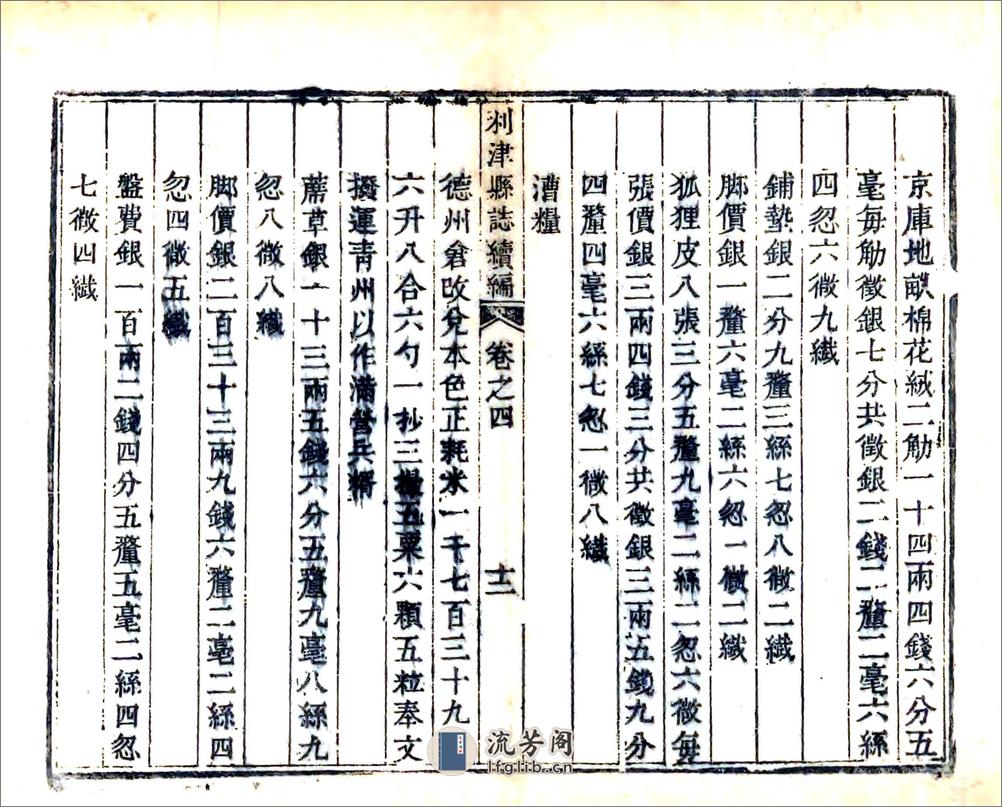 京庫地畝棉花絨二觔一十四兩四錢六分五
毫每觔徵銀七分共徵銀二錢二釐二毫六絲
四忽六微九纖
鋪墊銀二分九釐三絲七忽八微二纖
脚價銀一釐六毫二絲六忽一微二纖
狐狸皮八張三分五釐九毫二絲二忽六微每
張價銀三兩四錢三分共徵銀三兩五錢九分
四釐四毫六絲七忽一微八纖
漕糧
利津縣誌續編 卷之四 十二
德州倉改兌本色正耗米一千七百三十九
六升八合六勺一抄三撮五粟六顆五粒奉文
撥運青州以作滿營兵糈
蓆草銀一十三兩五錢六分五釐九毫八絲九
忽八微八纖
脚價銀二百三十三兩九錢六釐二毫二絲四
忽四微五纖
盤費銀一百兩二錢四分五釐五毫二絲四忽
七微四纖
流芳阁
lfglib.cn